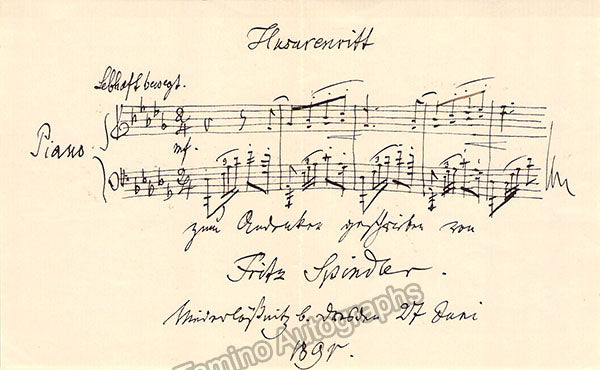 Husarenritt
Lebhaft bewegt.
Piano
mf.
zum Andenken geschrieben von
Fritz Spindler.
Niederlößnitz b. Dresden 27 Juni
Tamino Autographs